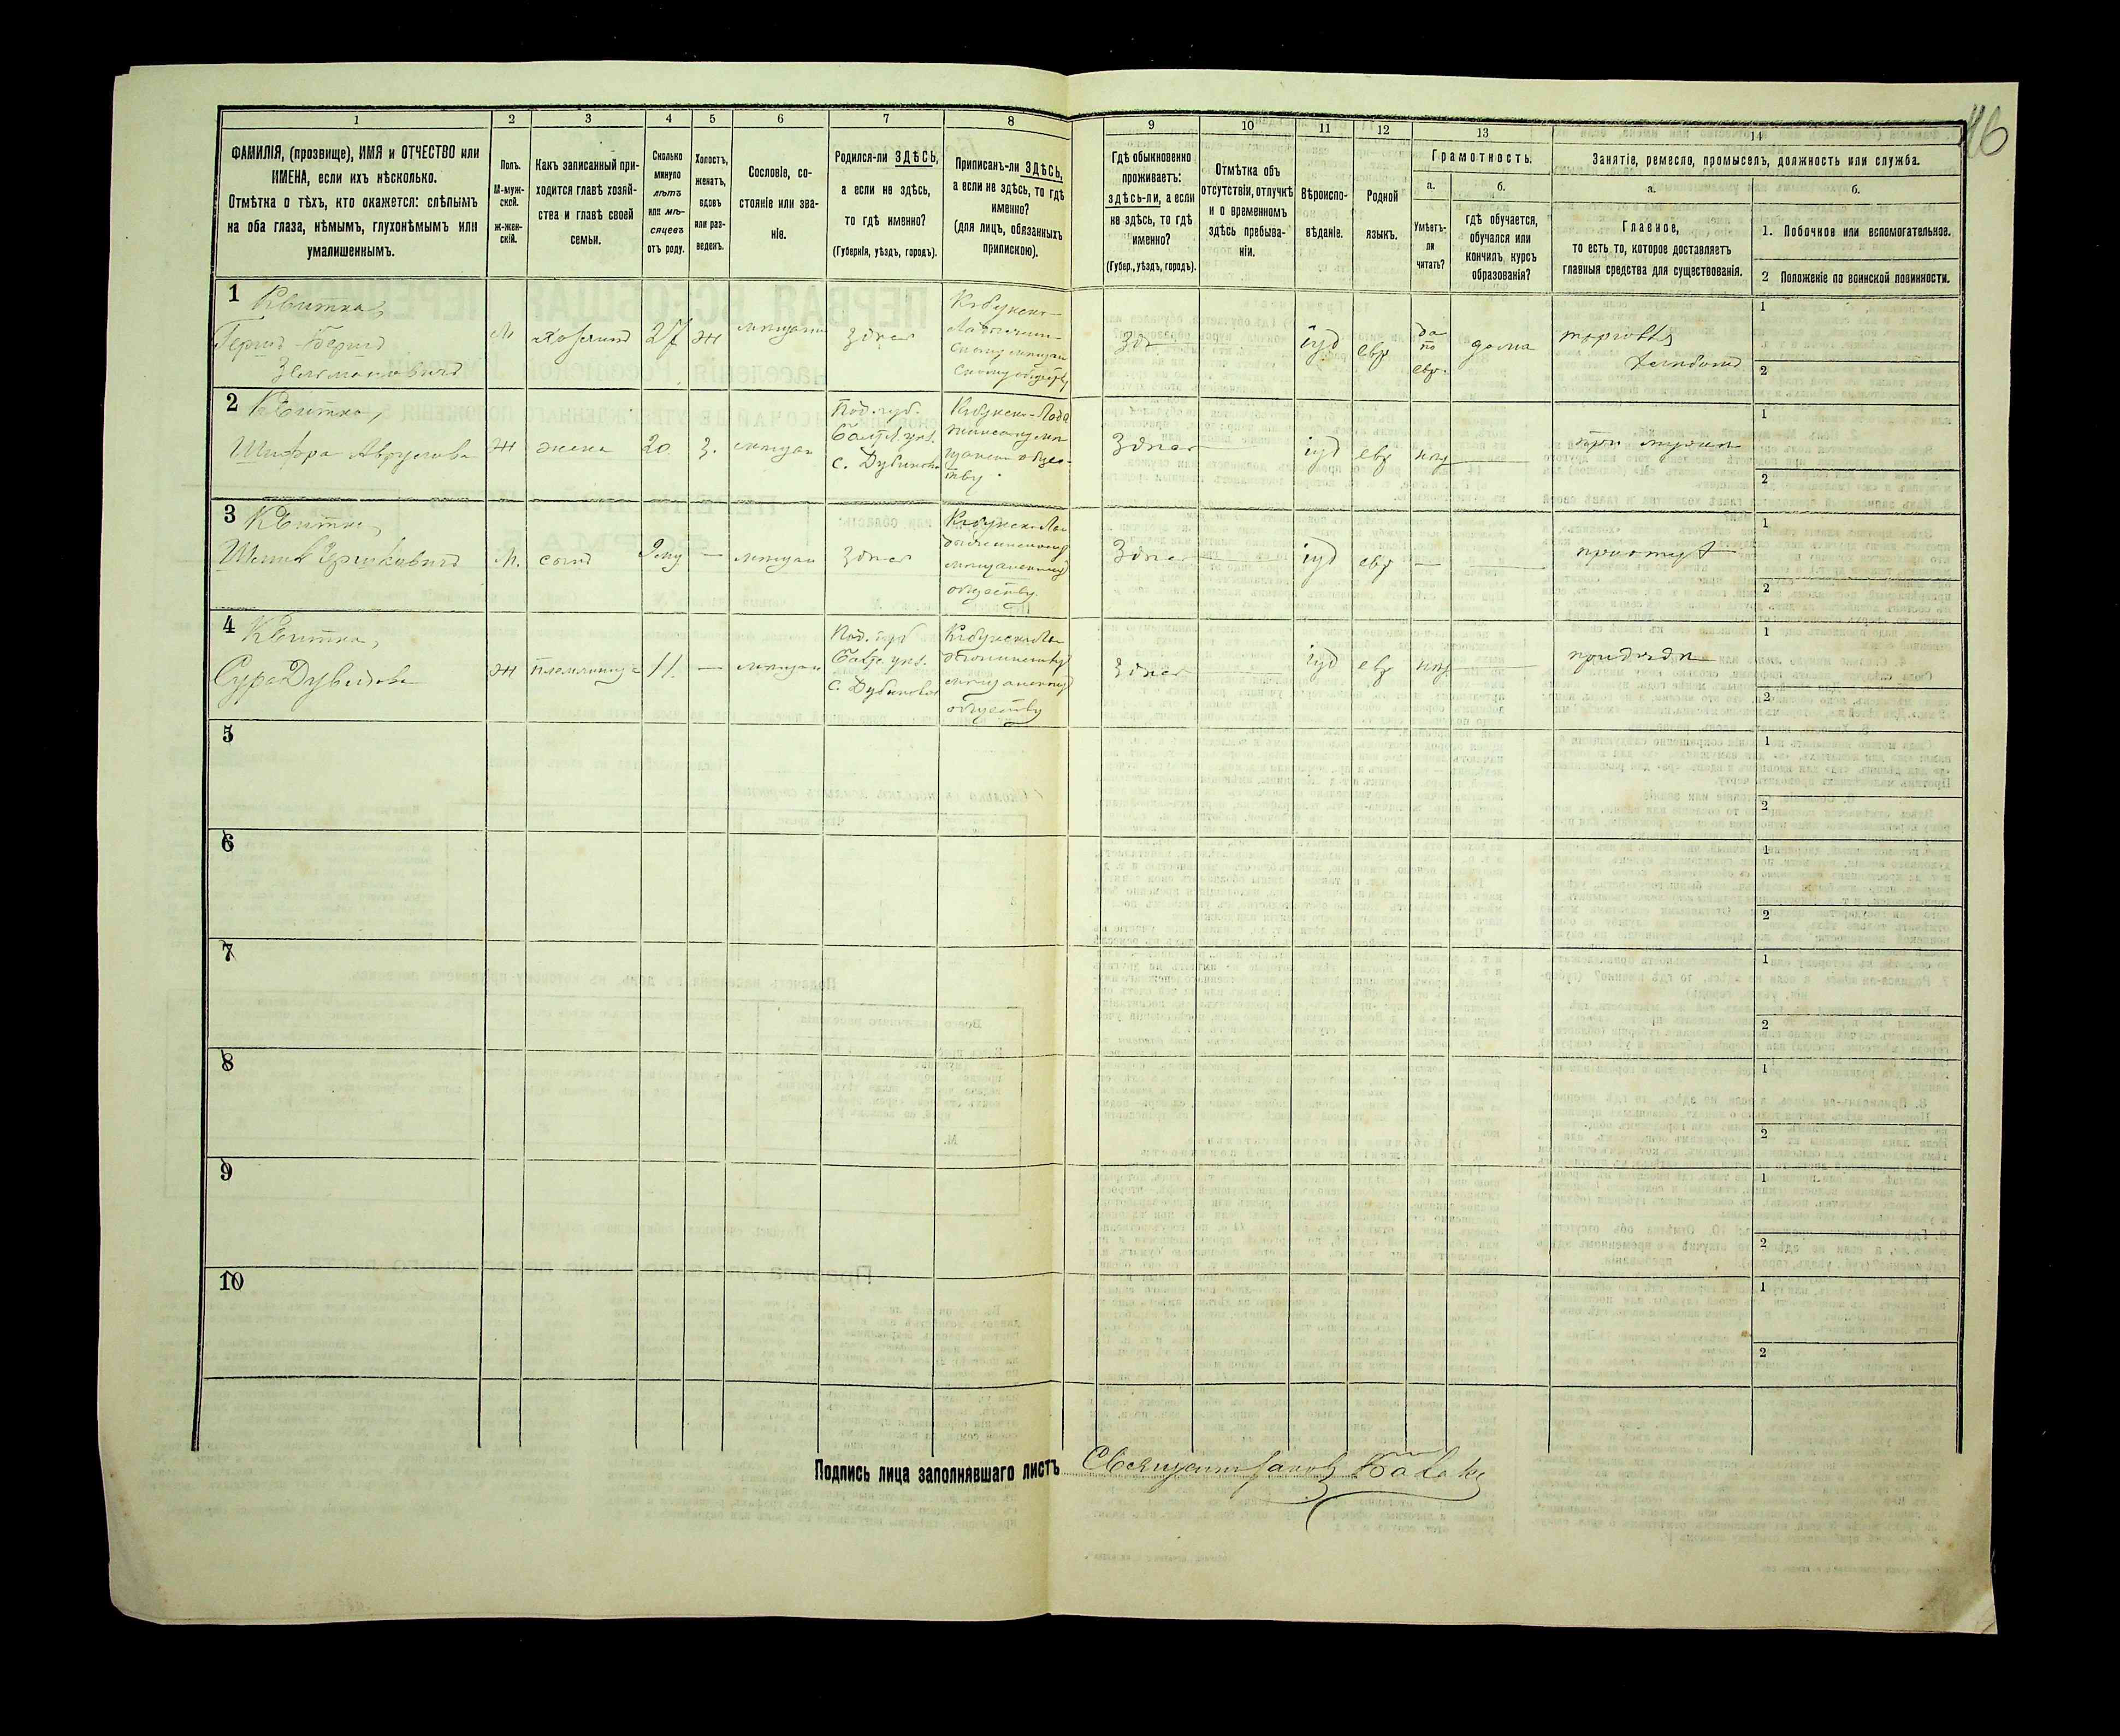 16
1
2
3
4
5
6
7
8
9
10
11
12
13
14
ФАМИЛІЯ, (прозвище), ИМЯ и ОТЧЕСТВО или
ИМЕНА, если ихъ нѣсколько.
Отмѣтка о тѣхъ, кто окажется: слѣпымъ
на оба глаза, нѣмымъ, глухонѣмымъ или
умалишеннымъ.
Полъ.
М-муж-
ской.
ж-жен-
скій.
Какъ записанный при-
ходится главѣ хозяй-
ства и главѣ своей
семьи.
Сколько
минуло
лѣтъ
или мѣ-
сяцевъ
отъ роду.
Холостъ,
женатъ,
вдовъ
или раз-
веденъ.
Сословіе, со-
стояніе или зва-
ніе.
Родился-ли ЗДѢСЬ,
а если не здѣсь,
то гдѣ именно?
(Губернія, уѣздъ, городъ).
Приписанъ-ли ЗДѢСЬ,
а если не здѣсь, то гдѣ
именно?
(для лицъ, обязанныхъ
припискою).
Гдѣ обыкновенно
проживаетъ:
здѣсь-ли, а если
не здѣсь, то гдѣ
именно?
(Губер., уѣздъ, городъ).
Отмѣтка объ
отсутствіи, отлучкѣ
и о временномъ
здѣсь пребыва-
ніи.
Вѣроиспо-
вѣданіе.
Родной
языкъ.
Грамотность.
а.
Умѣетъ-
ли
читать?
б.
гдѣ обучается,
обучался или
кончилъ курсъ
образованія?
Занятіе, ремесло, промыселъ, должность или служба.
а.
Главное,
то есть то, которое доставляетъ
главныя средства для существованія.
б.
1. Побочное или вспомогательное.
2 Положеніе по воинской повинности.
1
Квитка,
Гершъ-Беръ
Зельмановичъ
М
хозяинъ
27
ж
мѣщан
здѣсь
іуд
евр
да
по
евр.
дома
торговля
1
2
2
Квитка,
Шифра Аврумова
ж
жена
20
з.
мѣщан
Под. губ.
Балт. уѣз.
с. Дубиново
Здѣсь
іуд
евр
нѣт
при мужѣ
1
2
3
Квитка,
М.
сынъ
—
мѣщан
здѣсь
мѣщанскому
обществу
Здѣсь
іуд
евр
—
при отцѣ
1
2
4
Квитка,
Сура Дувидова
ж
племянница
11.
—
мѣщан
Под. губ
Балт. уѣз.
с. Дубиново
мѣщанскому
обществу
Здѣсь
іуд
евр
нѣт
при дядѣ
1
2
5
1
2
6
1
2
7
1
2
8
1
2
9
1
2
10
1
2
Подпись лица заполнявшаго листъ